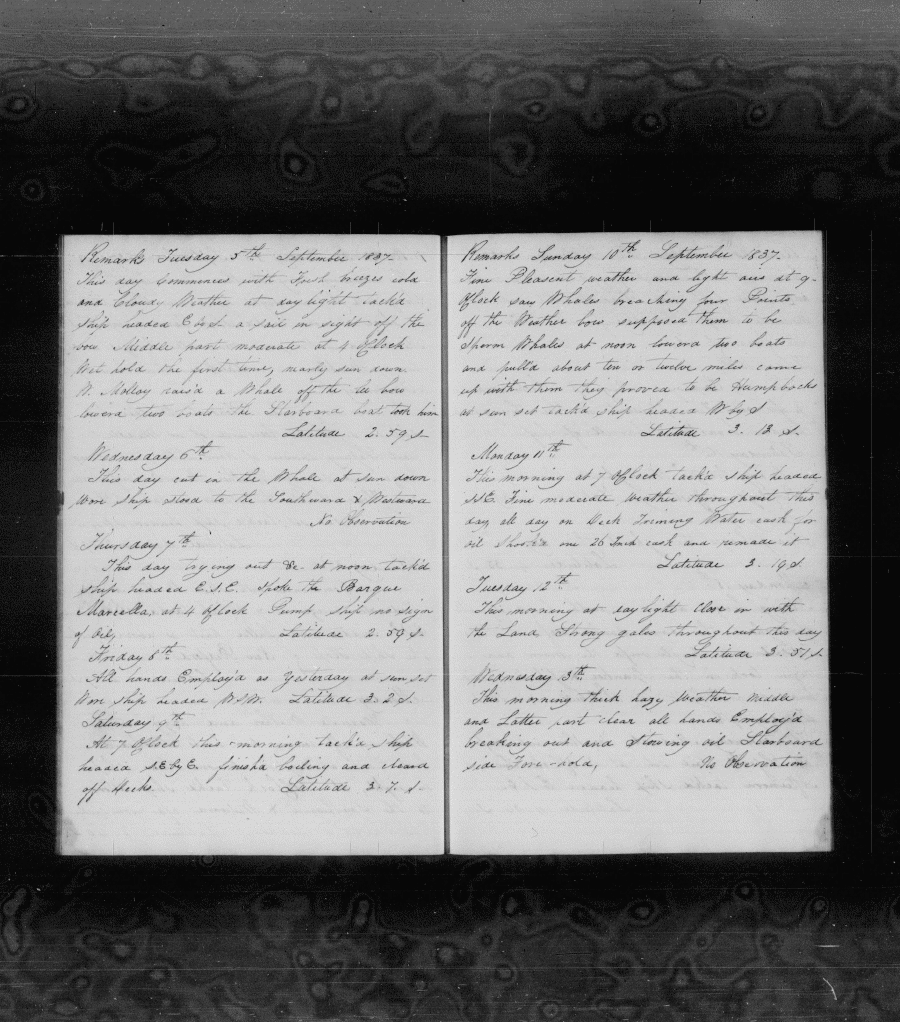 Remarks Tuesday 5th September 1837.
This day Commences with Fresh breezes cold
and Cloudy Weather at daylight tack'd
ship headed E by S. a sail in sight off the
bow Middle part moderate at 4 O'Clock
Wet hold the first time, nearly sun down
W. Molloy rais'd a Whale off the lee bow
lowerd two boats the Starboard boat took him
Latitude 2. 59 S.
Wednesday 6th
This day cut in the Whale at sun down
Wore ship stood to the Southward & Westward
No Observation
Thursday 7th
This day trying out &c at noon tack'd
ship headed E.S.E. spoke the Barque
Marcella, at 4 O'Clock Pump ship no sign
of Oil, Latitude 2. 59 S.
Friday 8th
All hands Employ'd as Yesterday at sun set
Wore ship headed W.S.W. Latitude 3. 2 S.
Saturday 9th
At 7 O'Clock this morning tack'd ship
headed S.E. by E. finish'd boiling and cleard
off decks. Latitude 3. 7. S.
Remarks Sunday 10th September 1837.
Fine Pleasent weather and light airs at 9
O'Clock saw Whales breaching four Points
off the Weather bow supposed them to be
Sperm Whales at noon lowerd two boats
and pulld about ten or twelve miles came
up with them they proved to be Humpbacks
at sun set tack'd ship headed W by S
Latitude 3. 13 S.
Monday 11th
This morning at 7 O'Clock tack'd ship headed
SSE. Fine moderate weather throughout this
day, all day on Deck Trimming Water cask for
oil Shook'd one 26 Inch cask and remade it
Latitude 3. 19 S.
Tuesday 12th
This morning at daylight Close in with
the Land Strong gales throughout this day
Latitude 3. 51 S.
Wednesday 13th
This morning thick hazy Weather middle
and Latter part clear all hands Employ'd
breaking out and Stowing oil Starboard
side Fore-hold, No Observation